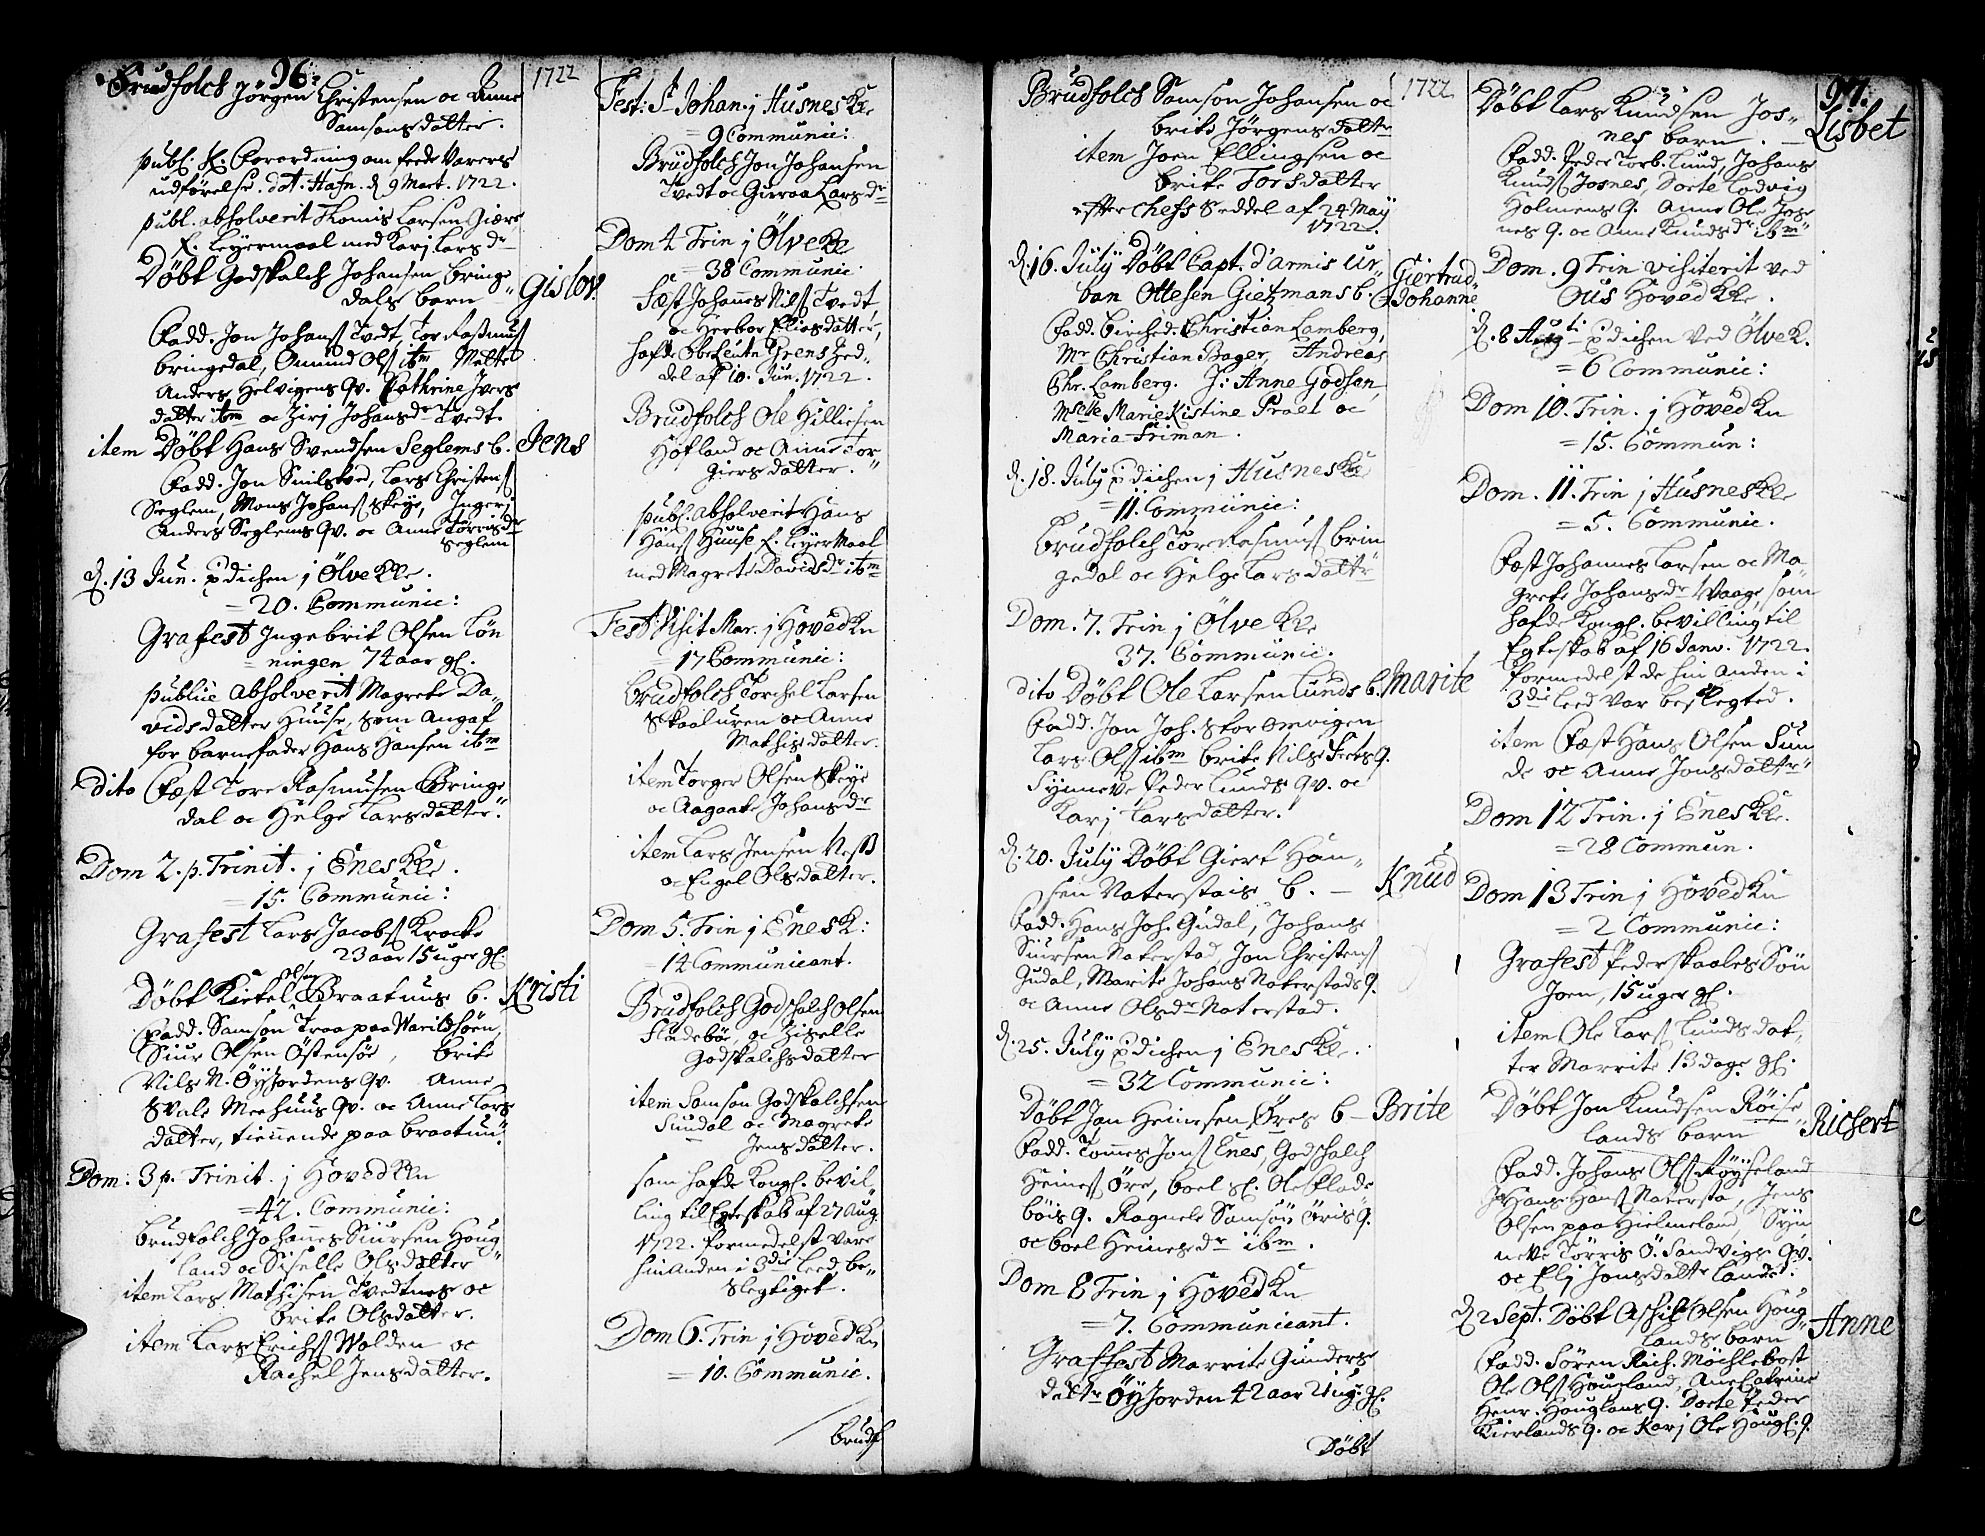 96.
1722
Brudfolch Jörgen Christensen oc Anne
Samsons datter.
publ. K. Forordning om feede Varers
udförelse. dat. Hafn. d 9 Mart. 1722.
publ. absolverit Thomis Larsen Giære
f. Leyermaal med Karj Lars dr
Döbt Godskalch Johansen Bringe
dals barn – Gislov.
Fadd. Jon Johans Tvedt, Tor Rasmus
bringedal, Amund Ols ibm Malte
Anders Helvigens qv. Cathrine Ivers
datter ibm oc Zirj Johansdr Tvedt.
item Döbt Hans Svendsen Seglems b. Jens
Fadd. Jon Snilsved, Lars Christens
Seglem, Mons Johans Skeye, Inger
Anders Seglems qv. oc Anne Torrisdr
Seglem
d. 13 Jun. pdichen j Ölve Kke.
= 20. Communic:
Grafest Ingebrit Olsen Lön
ningen 74 aar gl.
publice absolverit Magrete Da
vidsdatter Huuse, som angaf
for barnefader Hans Hansen ibm
dito Fæst Tore Rasmusen Bringe
dal oc Helge Larsdatter.
Dom 2. p. Trinit. j Enes Kke.
= 15. Communic:
Grafest Lars Jacobs Krocke
23 aar 15 uger gl.
Döbt Kietel Olsen Braatuns b. Kristi
Fadd. Samson Traa paa Varildsöen,
Siur Olsen Östensöe, Brite
Nils N. Öyjordens qv. Anne
Svale Meehuus qv. oc Anne Lars
datter, tienende paa braatun.
Dom: 3 p. Trinit. j Hoved Kn
= 42. Communic:
Brudfolch Johannes Siursen Houg
land oc Siselle Olsdatter
item Lars Mathisen Tvedtnes oc
brite Olsdatter.
item Lars Erichs Wolden oc
Rachel Jensdatter.
Fest: St Johan. j Husnes Kke
= 9 Communic:
Brudfolch Jon Johansen
Tvedt oc Guroa Larsdr
Dom 4 Trin j Ölve Kke
= 38 Communic.
Fæst Johannes Nils Tvedt
oc Herbor Eliasdatter,
hafde Obrleutn Grens Zed
del af 10. Jun. 1722.
Brudfolch Ole Hilliesen
Hofland oc Anne Tor
giersdatter.
publ. absolverit Hans
Hans Huuse f. Leyermaal
med Magrete Davidsdr ibm
Fest Visit Mar. j Hoved Kn
= 17 Communic:
Brudfolch Torchel Larsen
Skaaluren oc Anne
Mathisdatter.
item Torger Olsen Skeye
oc Aagaate Johansdr
item Lars Jensen Ness
oc Engel Olsdatter.
Dom 5. Trin j Enes K:
= 14 Communicant.
Brudfolch Godschalch Olsen
Fludeböe, oc Ziselle
Godskalchsdatter
item Samson Godskalchsen
Sundal oc Magrete
Jensdatter.
som hafde Kongl. bevil
ling til Egteskab af 27 Aug.
1722. formedelst vare
hinanden i 3die leed be
slegtiget.
Dom 6. Trin j Hoved Kn
= 10. Communic.
brudf
1722
97.
Brudfolch Samson Johansen oc
brite Jörgensdatter
item Joen Ellingsen oc
brite Torsdatter
efter Chefs Seddel af 24 May
1722.
d. 16. July Döbt Capt. d'armis Ur
ban Ottesen Gietzmans b. Giertrud
Johanne
Fadd. Birched. Christian Lamberg,
Mr Christian Bager, Andreas
Chr. Lamberg. J: Anne Godson,
Mselle Marie Kistine Praet oc
Maria Friman.
d. 18. July pdichen j Husnes Kke
= 11. Communic:
Brudfolch Tore Rasmus brin
gedal oc Helge Larsdattr
Dom. 7. Trin j Ölve Kke
37. Communic.
dito Döbt Ole Larsen Lunds b. Marite
Fadd. Jon Joh. Stor Omvigen
Lars Ols ibm brite Nils Feets q.
Synneve Peder Lunds qv. oc
Karj Larsdatter.
d. 20. July Döbt Giert Han
sen Naterstads b. – Knud
Fadd. Hans Joh. Gudal, Johans
Siursen Naterstad, Jon Christens
Gudal, Marite Johans Naterstads q.
oc Anne Olsdr Naterstad.
d. 25. July pdichen j Enes Kke.
= 32 Communic:
Döbt Jan Heinesen Öres b – Brite
Fadd. Tomes Jons Enes, Godschalch
Heines Öre, boel Sl. Ole Flade
böis q. Ragnele Samson Öris q.
oc boel Heinesdr ibm.
Dom 8 Trin j Hoved Kn
= 7. Communicant.
Graffest Marrite Gunders
dattr Öyjorden 42 aar 2 ug. gl.
Döbt
Döbt Lars Knudsen Jos
nes barn. – Lisbet
Fadd. Peder Torb. Lund, Johans
Knuds Josnes, Dorte Lodvig
Holmens q. Anne Ole Jos
nes q. oc Anne Knudsdr ibm
Dom. 9 Trin visiterit ved
Ous Hoved Kke.
d. 8 Augti pdichen ved Ölve K.
= 6 Communic:
Dom 10. Trin. j Hoved Kn
= 15. Commun:
Dom. 11. Trin j Husnes Kke
= 5. Communic.
Fæst Johannes Larsen oc Ma
grete Johansdr Waage som
hafde Kongl. bevilling til
Egteskab af 16 Janv. 1722.
formedelst de hin anden i
3die leed var beslegted.
item Fæst Hans Olsen Sun
de oc Anne Jonsdattr
Dom 12 Trin. j Enes Kke.
= 28 Commun.
Dom 13 Trin j Hoved Kn
= 2 Communic:
Grafest Peder Skaales Sön
Joen, 15 uger gl.
item Ole Lars Lunds dat
ter Marrite 13 dage gl.
Döbt Jon Knudsen Röise
lands barn Richert
Fadd. Johans Ols Röyseland
Hans Hans Natersta, Jens
Olsen paa Hielmeland, Syn
neve Törris Ö. Sandvigs qv.
oc Elj Jonsdatter
d 2 Sept. Döbt Aschil Olsen Houg
lands barn Anne
Fadd. Sören Rich. Möchlebost
Ole Ols Hougland, Ane Catrine
Henr. Houglans q. Dorte Peder
Kierlands q. oc Karj Ole Hougl. q.